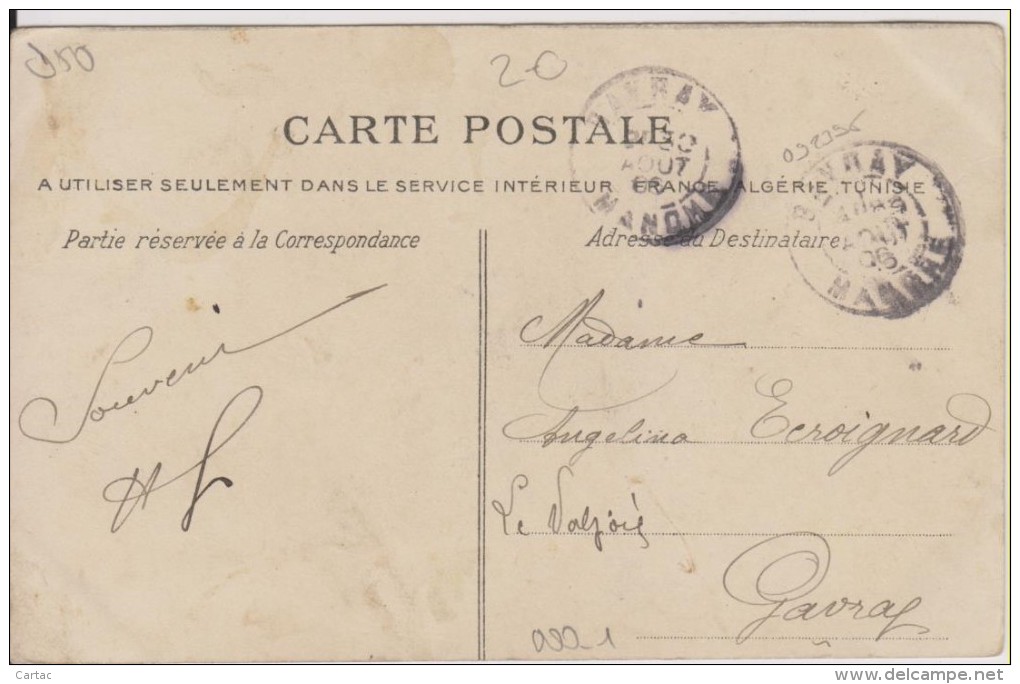 050
20
CARTE POSTALE
A UTILISER SEULEMENT DANS LE SERVICE INTÉRIEUR FRANCE, ALGÉRIE, TUNISIE
Partie réservée à la Correspondance
Adresse du Destinataire
GAVRAY
AOUT
06
MANCHE
GAVRAY
AOUT
06
MANCHE
Souvenir
Madame
Angelina Ecroignard
Le Valjois
Gavray
Cartac
www.delcampe.net